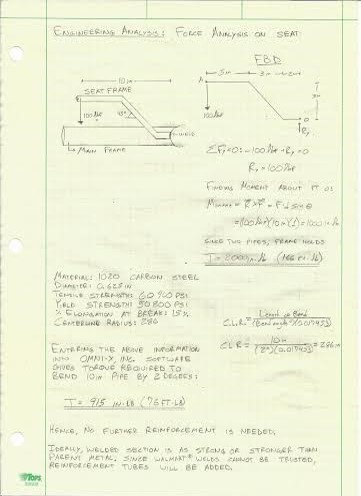 ENGINEERING ANALYSIS: FORCE ANALYSIS ON SEAT
FBD
10 in
SEAT FRAME
100 lbf
45°
MAIN FRAME
A
5 in
3 in
2 in
100 lbf
Ry
ΣFy=0: -100 lbf + Ry = 0
Ry = 100 lbf
FINDING MOMENT ABOUT PT O:
= (100 lbf)(10 in)(1) = 1000 in·lb
SINCE TWO PIPES, FRAME HOLDS
T = 2000 in·lb (166 ft·lb)
MATERIAL: 1020 CARBON STEEL
DIAMETER: 0.625 in
TENSILE STRENGTH: 60 900 PSI
YIELD STRENGTH: 50 800 PSI
% ELONGATION AT BREAK: 15%
CENTERLINE RADIUS: 286
C.L.R. = Length of Bend
(Bend angle°)(0.01745)
ENTERING THE ABOVE INFORMATION
INTO OMNI-X, INC. SOFTWARE
GIVES TORQUE REQUIRED TO
BEND 10 in PIPE BY 2 DEGREES:
CLR = 10 in
(2°)(0.01745) = 286 in
T = 915 in·lb (76 ft·lb)
HENCE, NO FURTHER REINFORCEMENT IS NEEDED.
IDEALLY, WELDED SECTION IS AS STRONG OR STRONGER THAN
PARENT METAL; SINCE WALMART WELDS CANNOT BE TRUSTED,
REINFORCEMENT TUBES WILL BE ADDED.
Tops